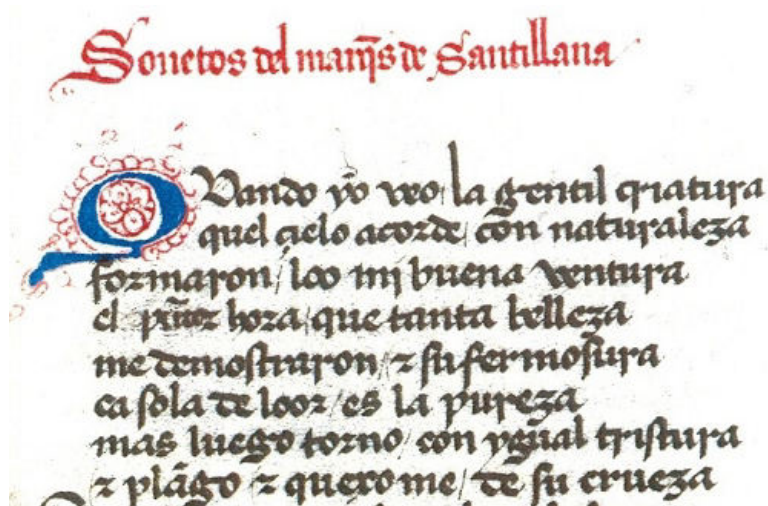 Sonetos del marq̃s de Santillana
Quando yo veo la gentil criatura
quel cielo acorde con naturaleza
formaron loo mi buena ventura
el pũto z hora que tanta belleza
me demostraron z su fermosura
ca sola de loor es la pureza
mas luego torno con ygual tristura
z plãgo z quexome de su crueza